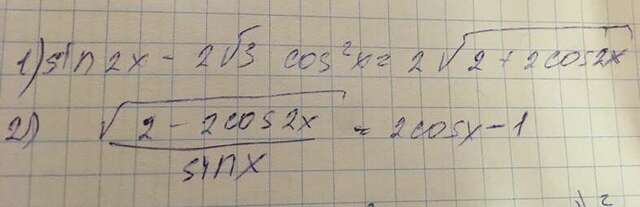 1) sin 2x - 2√3 cos²x = 2√(2 + 2cos2x)
2) √(2 - 2cos2x) / sinx = 2cosx - 1